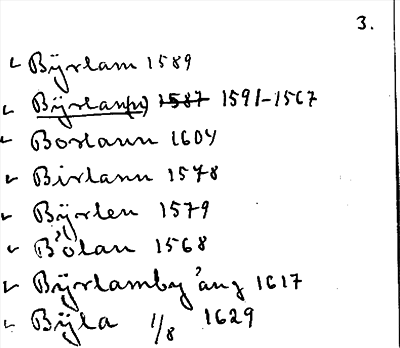 3.
Bÿrlam 1589
Bÿrlan(n) 1587 1591-1567
Borlann 1604
Birlann 1578
Bÿrlen 1579
Bölan 1568
Bÿrlamby'ang 1617
Bÿla 1/8 1629